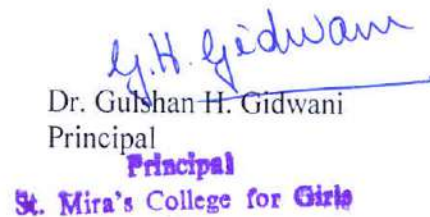 G.H. Gidwani
Dr. Gulshan H. Gidwani
Principal
Principal
St. Mira's College for Girls